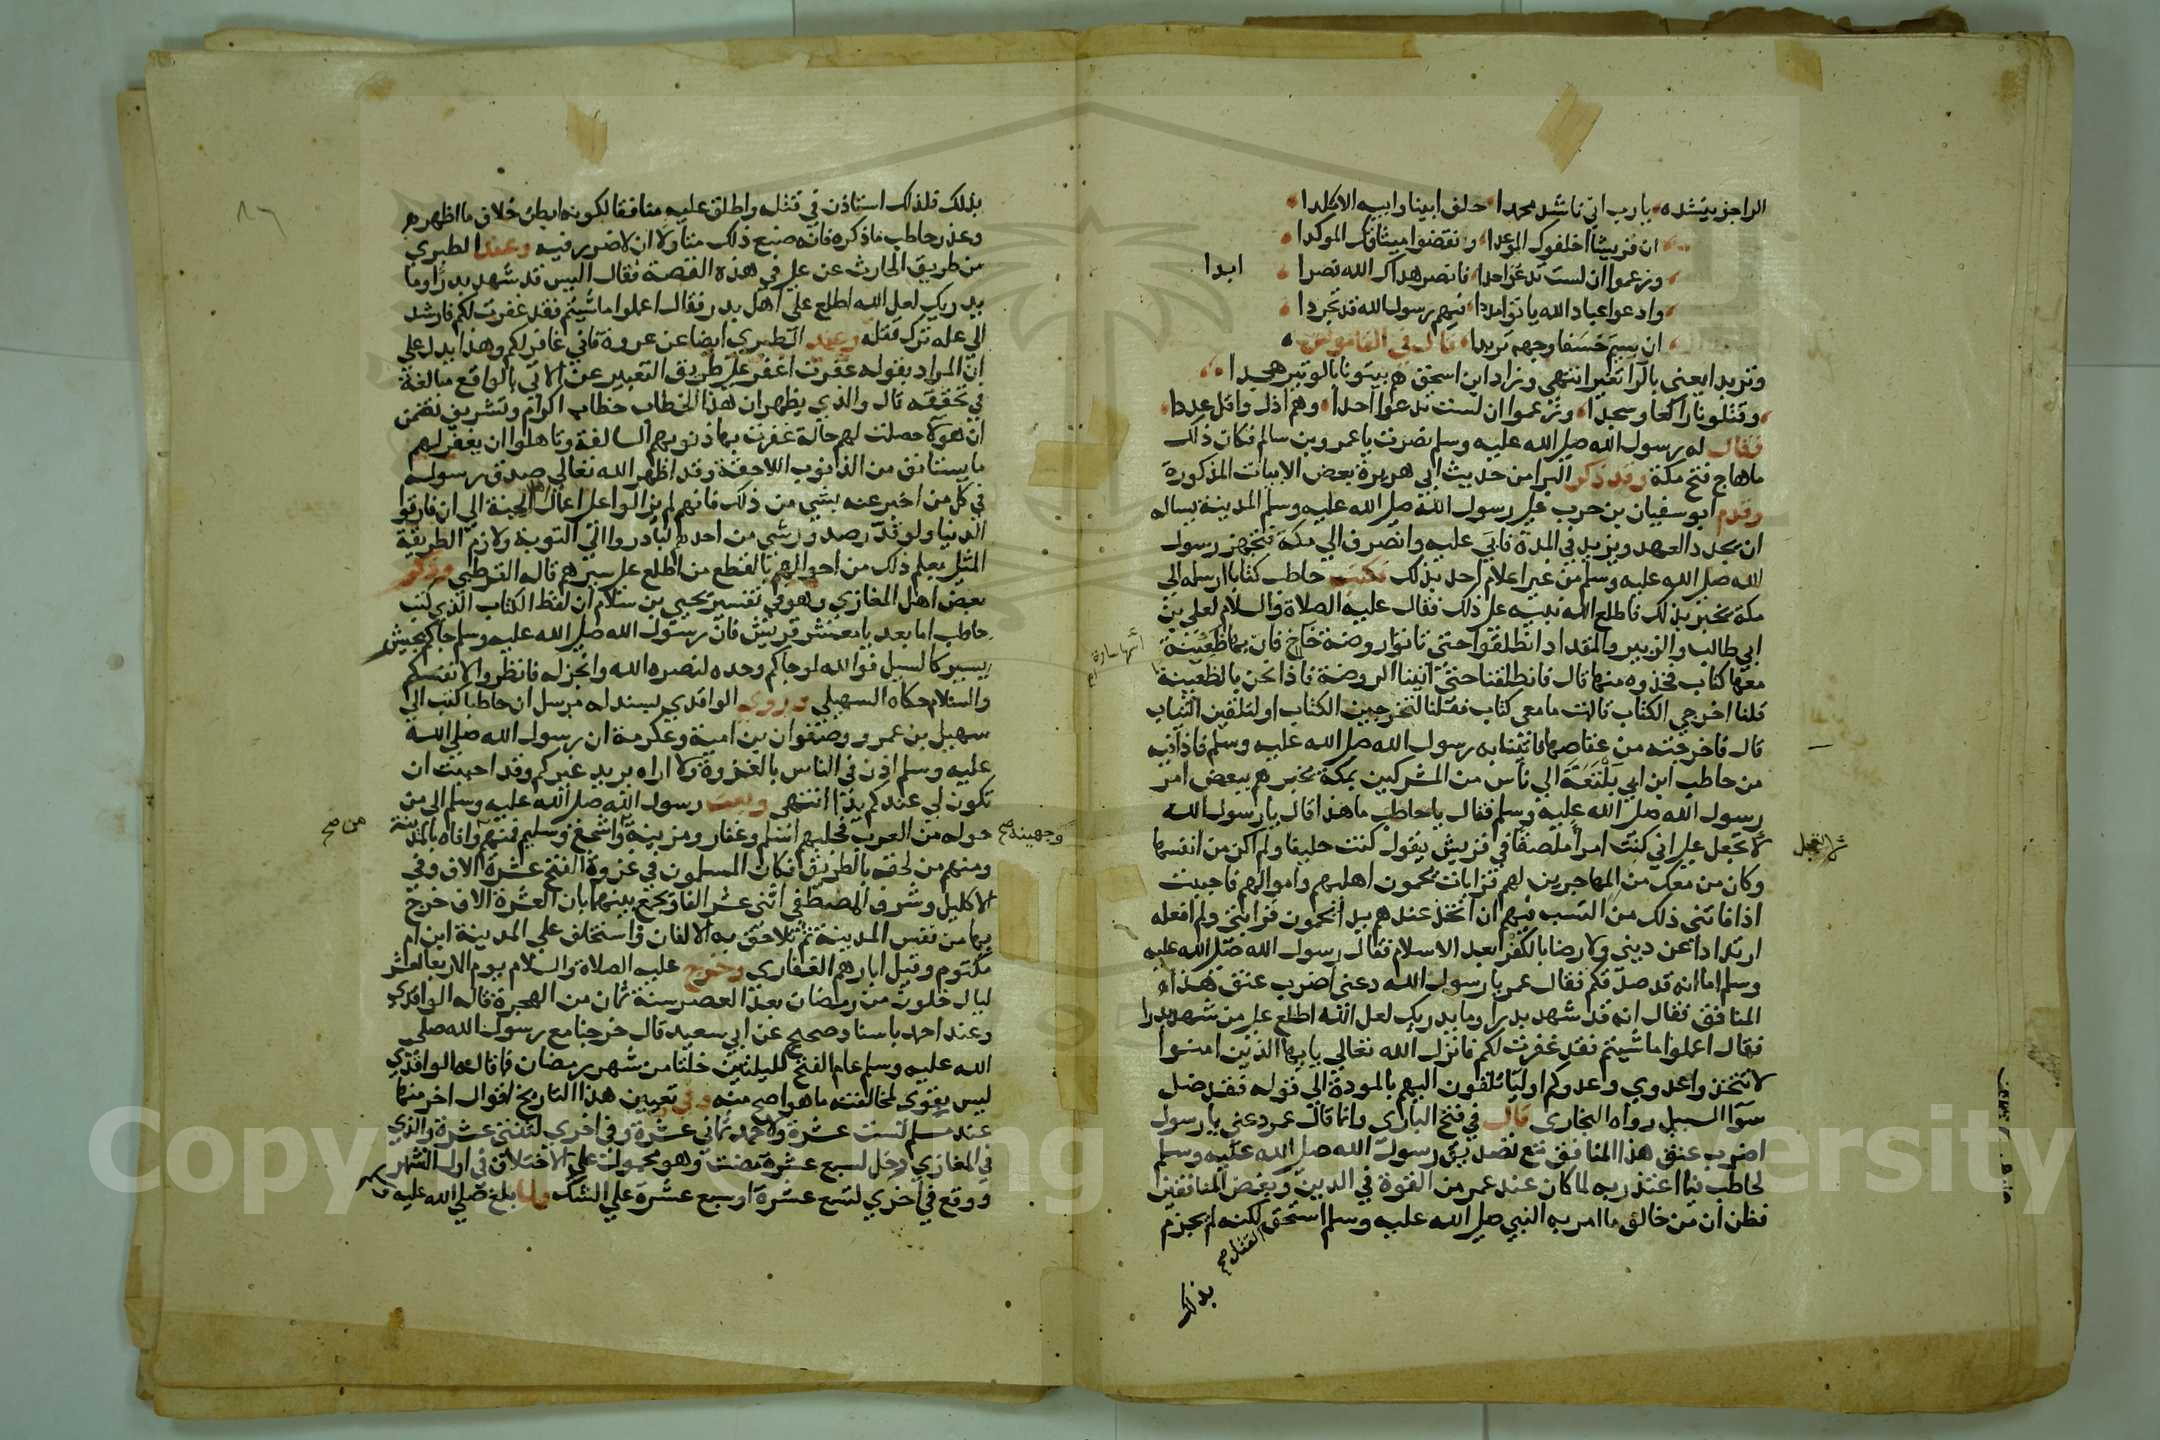 الراجز ينشده يا رب اني ناشد محمدا حلف ابينا وابيه الاتلدا
ان قريشا اخلفوك الموعدا ونقضوا ميثاقك الموكدا
وزعموا ان لست تدعوا احدا فانصر هداك الله نصرا ابدا
وادعوا عباد الله ياتوا مددا فيهم رسول الله قد تجردا
ان سيم خسفا وجهه تربدا قال في القاموس
وتربد ايعني بالرا تغير انتهي وزاد ابن اسحق هم بيتونا بالوتير هجدا
وقتلونا راكعا وسجدا وزعموا ان لست تدعوا احدا وهم اذل واقل عددا
فقال له رسول الله صلي الله عليه وسلم نصرت يا عمرو بن سالم فكان ذلك
ما هاج فتح مكة وقد ذكر البزا من حديث ابي هريرة بعض الابيات المذكورة
وقدم ابو سفيان بن حرب علي رسول الله صلي الله عليه وسلم المدينة يساله
ان يجدد العهد ويزيد في المدة فابي عليه وانصرف الي مكة فتجهز رسول
الله صلي الله عليه وسلم من غير اعلام احد بذلك فكتب حاطب كتابا ارسله الي
مكة يخبر بذلك فاطلع الله نبيه علي ذلك فقال عليه الصلاة والسلام لعلي بن
ابي طالب والزبير والمقداد انطلقوا حتي تاتوا روضة خاخ فان بها ظعينة
اسمها سارة
معها كتاب فخذوه منها قال فانطلقنا حتي اتينا الروضة فاذا نحن بالظعينة
قلنا اخرجي الكتاب قالت ما معي كتاب فقلنا لتخرجين الكتاب او لتلقين الثياب
قال فاخرجته من عقاصها فاتينا به رسول الله صلي الله عليه وسلم فاذا فيه
من حاطب ابن ابي بلتعة الي ناس من المشركين بمكة يخبرهم ببعض امر
رسول الله صلي الله عليه وسلم فقال يا حاطب ما هذا قال يا رسول الله
لا تعجل علي اني كنت امرا ملصقا في قريش يقول كنت حليفا ولم اكن من انفسها
وكان من معك من المهاجرين لهم قرابات يحمون اهليهم واموالهم فاحببت
اذ فاتني ذلك من النسب فيهم ان اتخذ عندهم يدا يحمون قرابتي ولم افعله
ارتدادا عن ديني ولا رضا بالكفر بعد الاسلام فقال رسول الله صلي الله عليه
وسلم اما انه قد صدقكم فقال عمر يا رسول الله دعني اضرب عنق هذا
المنافق فقال انه قد شهد بدرا وما يدريك لعل الله اطلع علي من شهد بدرا
فقال اعملوا ما شيتم فقد غفرت لكم فانزل الله تعالي يا ايها الذين امنوا
لا تتخذوا عدوي وعدوكم اوليا تلقون اليهم بالمودة الي قوله فقد ضل
سوآ السبيل رواه البخاري قال في فتح الباري وانما قال عمر دعني يا رسول
اضرب عنق هذا المنافق مع تصديق رسول الله صلي الله عليه وسلم
لحاطب فيما اعتذر به لما كان عند عمر من القوة في الدين وبغض المنافقين
فظن ان من خالف ما امر به النبي صلي الله عليه وسلم استحق لكنه لم يجزم
القتل صح
بذلك
بذلك فلذلك استاذن في قتله واطلق عليه منافقا لكونه ابطن خلاف ما اظهر
وعذر حاطب ما ذكره فانه صنع ذلك متاولا ان لا ضرر فيه وعند الطبري
من طريق الحارث عن علي في هذه القصة فقال اليس قد شهد بدرا وما
يدريك لعل الله اطلع علي اهل بدر فقال اعملوا ما شيتم فقد غفرت لكم فارشد
الي علة ترك قتله وعند الطبري ايضا عن عروة فاني غافر لكم وهذا يدل علي
ان المراد بقوله غفرت اغفر علي طريق التعبير عن الاتي بالواقع مبالغة
في تحققه قال والذي يظهر ان هذا الخطاب خطاب اكرام وتشريف تضمن
ان هولا حصلت لهم حالة غفرت بها ذنوبهم السالفة وتاهلوا ان يغفر لهم
ما يستانف من الذنوب اللاحقة وقد اظهر الله تعالي صدق رسوله
في كل من اخبر عنه بشي من ذلك فانهم لم يزالوا علي اعمال اهل الجنة الي ان فارقوا
الدنيا ولو قدر صدور شي من احدهم لبادروا الي التوبة ولازم الطريقة
المثلي يعلم ذلك من احوالهم بالقطع من اطلع علي سيرهم قاله القرطبي وذكر
بعض اهل المغازي وهو في تفسير يحيي بن سلام ان لفظ الكتاب الذي كتب
حاطب اما بعد يا معشر قريش فان رسول الله صلي الله عليه وسلم جاكم بجيش
يسير كالسيل فوالله لو جاكم وحده لنصره الله وانجز له فانظروا لانفسكم
والسلام حكاه السهيلي وروي الواقدي بسند له مرسل ان حاطبا كتب الي
سهيل بن عمرو وصفوان بن امية وعكرمة ان رسول الله صلي الله
عليه وسلم اذن في الناس بالغزو ولا اراه يريد غيركم وقد احببت ان
تكون لي عندكم يدا انتهي وبعث رسول الله صلي الله عليه وسلم الي من
حوله من العرب فجلبهم اسلم وغفار ومزينة واشجع وسليم فمنهم من وافاه بالمدينة
وجهينة صح
من صح
ومنهم من لحقه بالطريق فكان المسلمون في غزوة الفتح عشرة الاف وفي
الاكليل وشرف المصطفي اثني عشر الفا ويجمع بينهما بان العشرة الاف خرج
بها من نفس المدينة ثم تلاحق به الالفان واستخلف علي المدينة ابن ام
مكتوم وقيل ابا رهم الغفاري وخرج عليه الصلاة والسلام يوم الاربعا لعشر
ليال خلون من رمضان بعد العصر سنة ثمان من الهجرة قاله الواقدي
وعند احمد باسناد صحيح عن ابي سعيد قال خرجنا مع رسول الله صلي
الله عليه وسلم عام الفتح لليلتين خلتا من شهر رمضان فما قاله الواقدي
ليس بقوي لمخالفته ما هو اصح منه وفي تعيين هذا التاريخ اقوال اخر منها
عند مسلم لست عشرة ولاحمد ثماني عشرة وفي اخري لثنتي عشرة والذي
في المغازي دخل لسبع عشرة مضت وهو محمول علي الاختلاف في اول الشهر
ووقع في اخري لتسع عشرة او سبع عشرة علي الشك ولما بلغ صلي الله عليه
Copyright © King Saud University